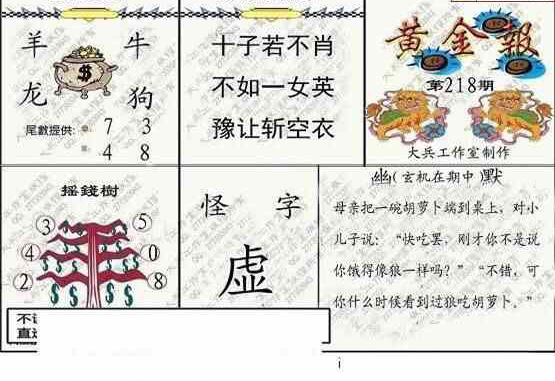 羊 牛
龙 狗
$
尾數提供: 7 3
4 8
十子若不肖
不如一女英
豫让斩空衣
黄金報
第218期
大兵工作室制作
摇錢樹
3 5
4 0
2 8
$ $ $ $ $ $
怪 字
虚
幽(玄机在期中 默
母亲把一碗胡萝卜端到桌上，对小
儿子说：“快吃罢，刚才你不是说
你饿得像狼一样吗？”“不错，可
你什么时候看到过狼吃胡萝卜。”
不
直
i